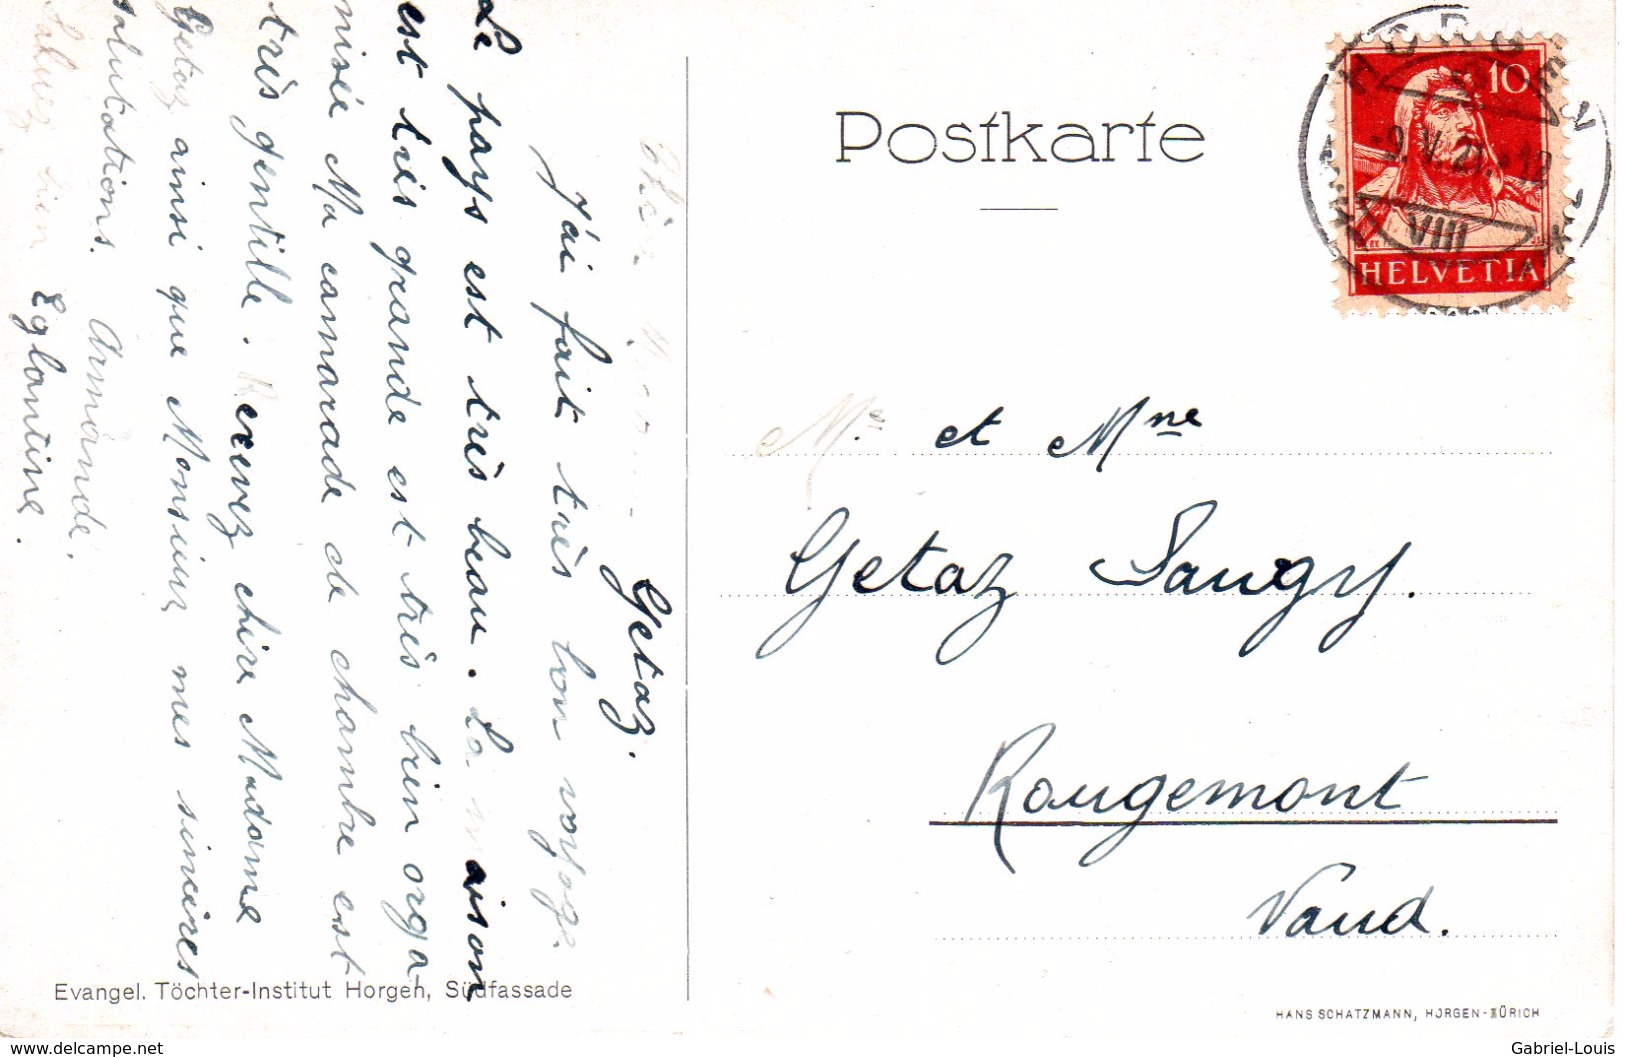 Postkarte
HORGEN
-9.V.21.-12
VIII
10
HELVETIA
Getaz.
J'ai fait très bon voyage.
Le pays est très beau. La maison
est très grande est très bien orga-
nisée Ma camarade de chambre est
très gentille. Recevez chère Madame
Getaz ainsi que Monsieur mes sincères
salutations. Armande.
Saluez bien Eglantine.
Mr et Mme
Getaz Saugy.
Rougemont
Vaud.
Evangel. Töchter-Institut Horgen, Südfassade
HANS SCHATZMANN, HORGEN-ZÜRICH
www.delcampe.net
Gabriel-Louis